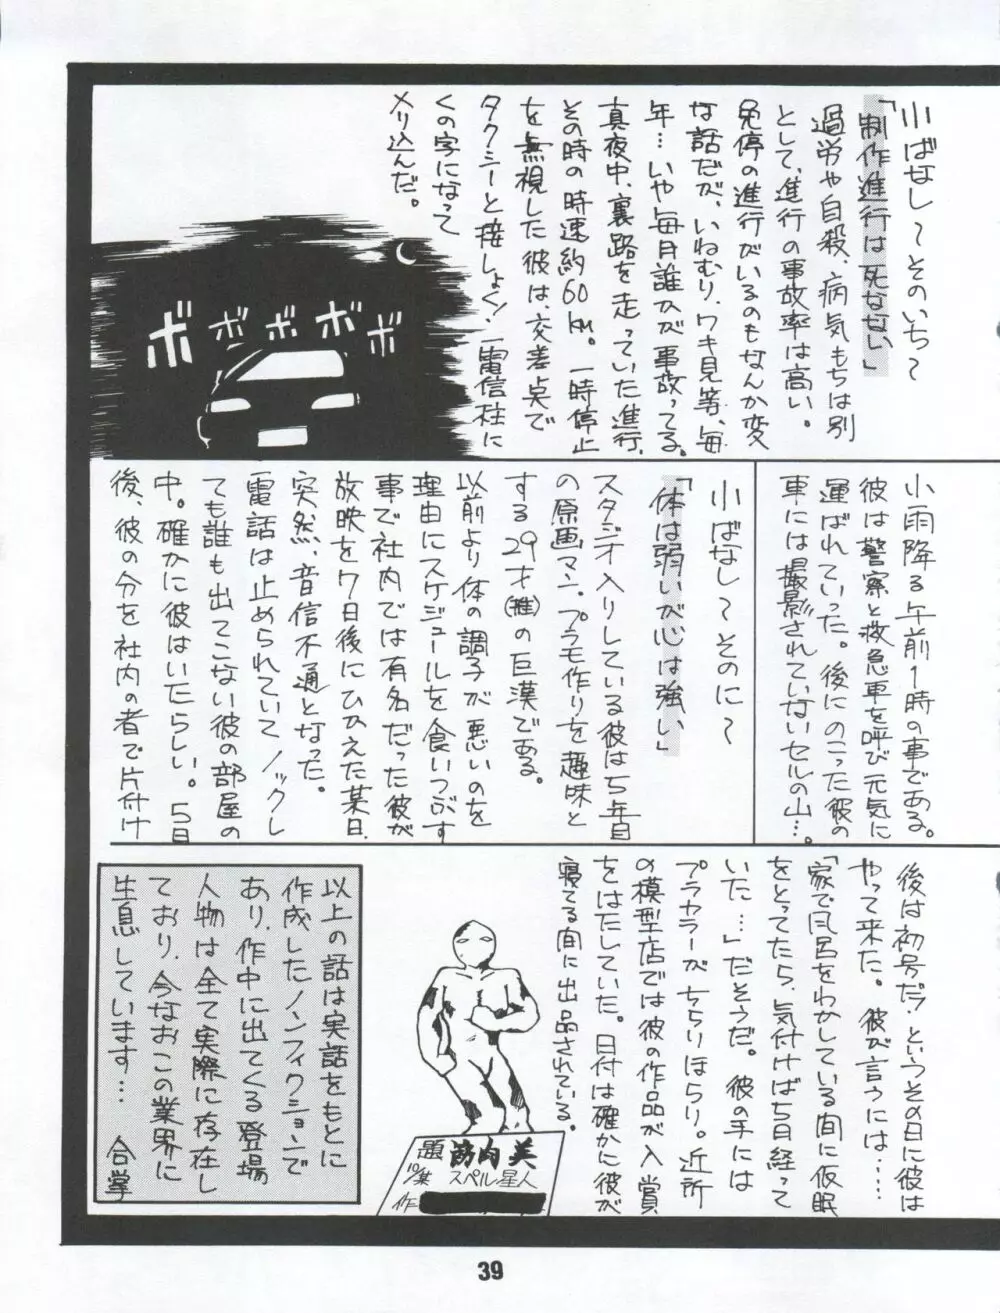 小ばなし〜そのいち〜
「制作進行は死なない」
過労や自殺、病気もちは別
として、進行の事故率は高い。
免停の進行がいるのもなんか変
な話だが、いねむり、ワキ見等、毎
年…いや毎月誰かが事故ってる。
真夜中、裏路を走っていた進行、
その時の時速約60km。一時停止
を無視した彼は、交差点で
タクシーと接しょく！電信柱に
くの字になって
メリ込んだ。
ボ
ボ
ボ
ボ
ボ
小雨降る午前1時の事である。
彼は警察と救急車を呼び元気に
運ばれていった。後にのこった彼の
車には撮影されていないセルの山…。
小ばなし〜そのに〜
「体は弱いが心は強い」
スタジオ入りしている彼は5年目
の原画マン。プラモ作りを趣味と
する29才(推)の巨漢である。
以前より体の調子が悪いのを
理由にスケジュールを食いつぶす
事で社内では有名だった彼が
放映を7日後にひかえた某日、
突然、音信不通となった。
電話は止められていて、ノックし
ても誰も出てこない彼の部屋の
中。確かに彼はいたらしい。5日
後、彼の分を社内の者で片付け
後は初号だ！というその日に彼は
やって来た。彼が言うには……
「家で風呂をわかしている間に仮眠
をとってたら、気付けば5日経って
いた…」だそうだ。彼の手には
プラカラーがちらりほらり。近所
の模型店では彼の作品が入賞
をはたしていた。日付は確かに彼が
寝てる間に出品されている。
題 筋肉美
スペル星人
作
以上の話は実話をもとに
作成したノンフィクションで
あり、作中に出てくる登場
人物は全て実際に存在し
ており、今なおこの業界に
生息しています… 合掌
39